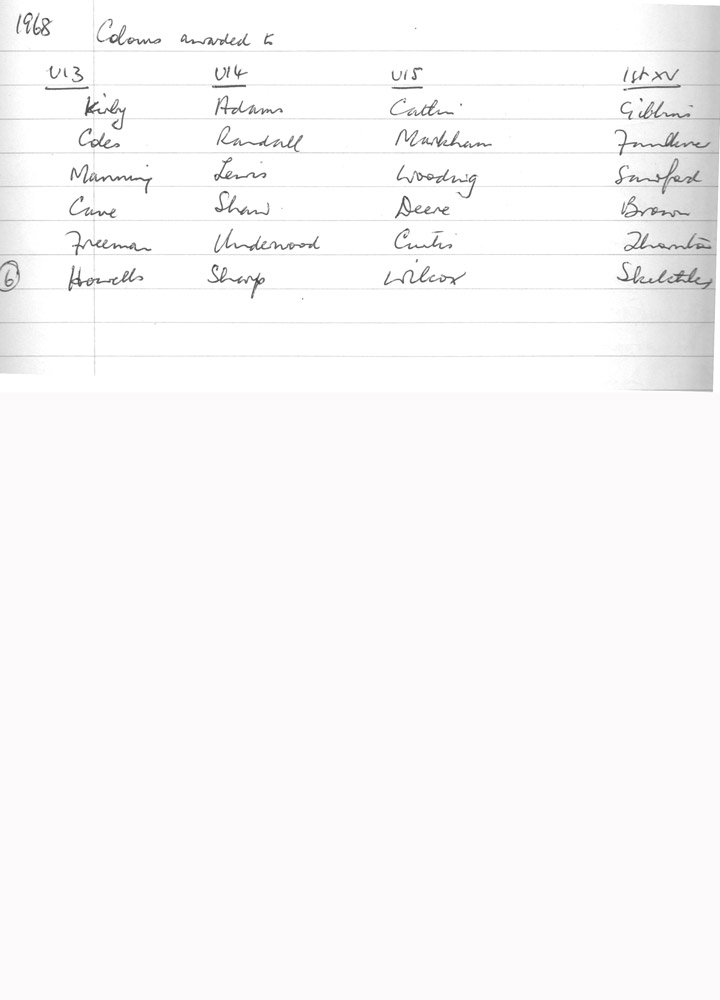 1968 Colours awarded to
U13 U14 U15 1st XV
Kirby Adams Catlin Gibbins
Coles Randall Markham
Manning Lewis Wooding Sawford
Cave Shaw Deere Brown
Freeman Underwood Curtis
6 Howells Sharp Wilcox